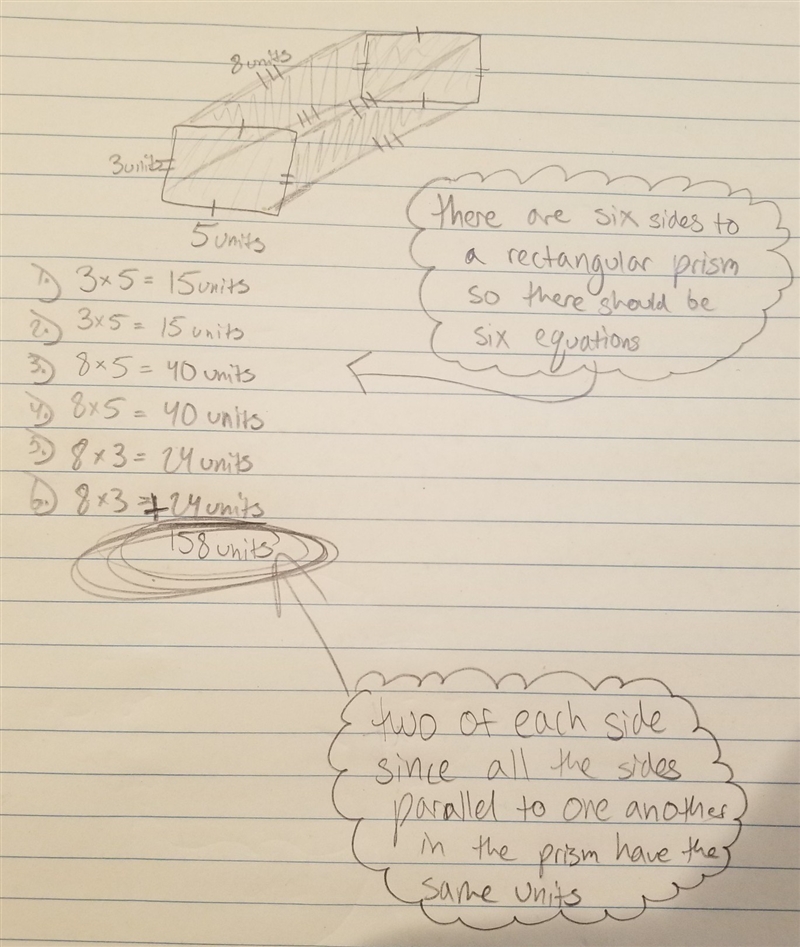 8 units
3 units
5 units
There are six sides to
a rectangular prism
so there should be
six equations
1.) 3×5 = 15 units
2.) 3×5 = 15 units
3.) 8×5 = 40 units
4.) 8×5 = 40 units
5.) 8×3 = 24 units
6.) 8×3 = +24 units
158 units
two of each side
since all the sides
parallel to one another
in the prism have the
same units